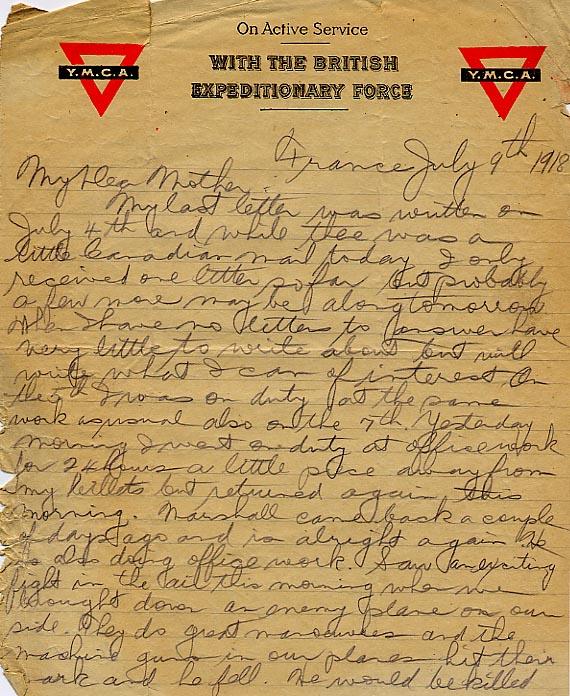 On Active Service
WITH THE BRITISH
EXPEDITIONARY FORCE
Y.M.C.A.
Y.M.C.A.
France July 9th 1918
My Dear Mother.
My last letter was written on
July 4th and while there was a
little Canadian mail today I only
received one letter so far but probably
a few more may be along tomorrow
When I have no letters to answer have
very little to write about but will
write what I can of interest On
the I was on duty at the same
work as usual also on the 7th. Yesterday
morning I went on duty at office work
for 24 hours a little piece away from
my billets but returned again this
morning. Marshall came back a couple
of days ago and is alright again He
is also doing office work. Saw an exciting
fight in the air this morning when we
brought down an enemy plane on our
side. They do great manouvres and the
machine guns in our planes hit their
ark and he fell. He would be killed